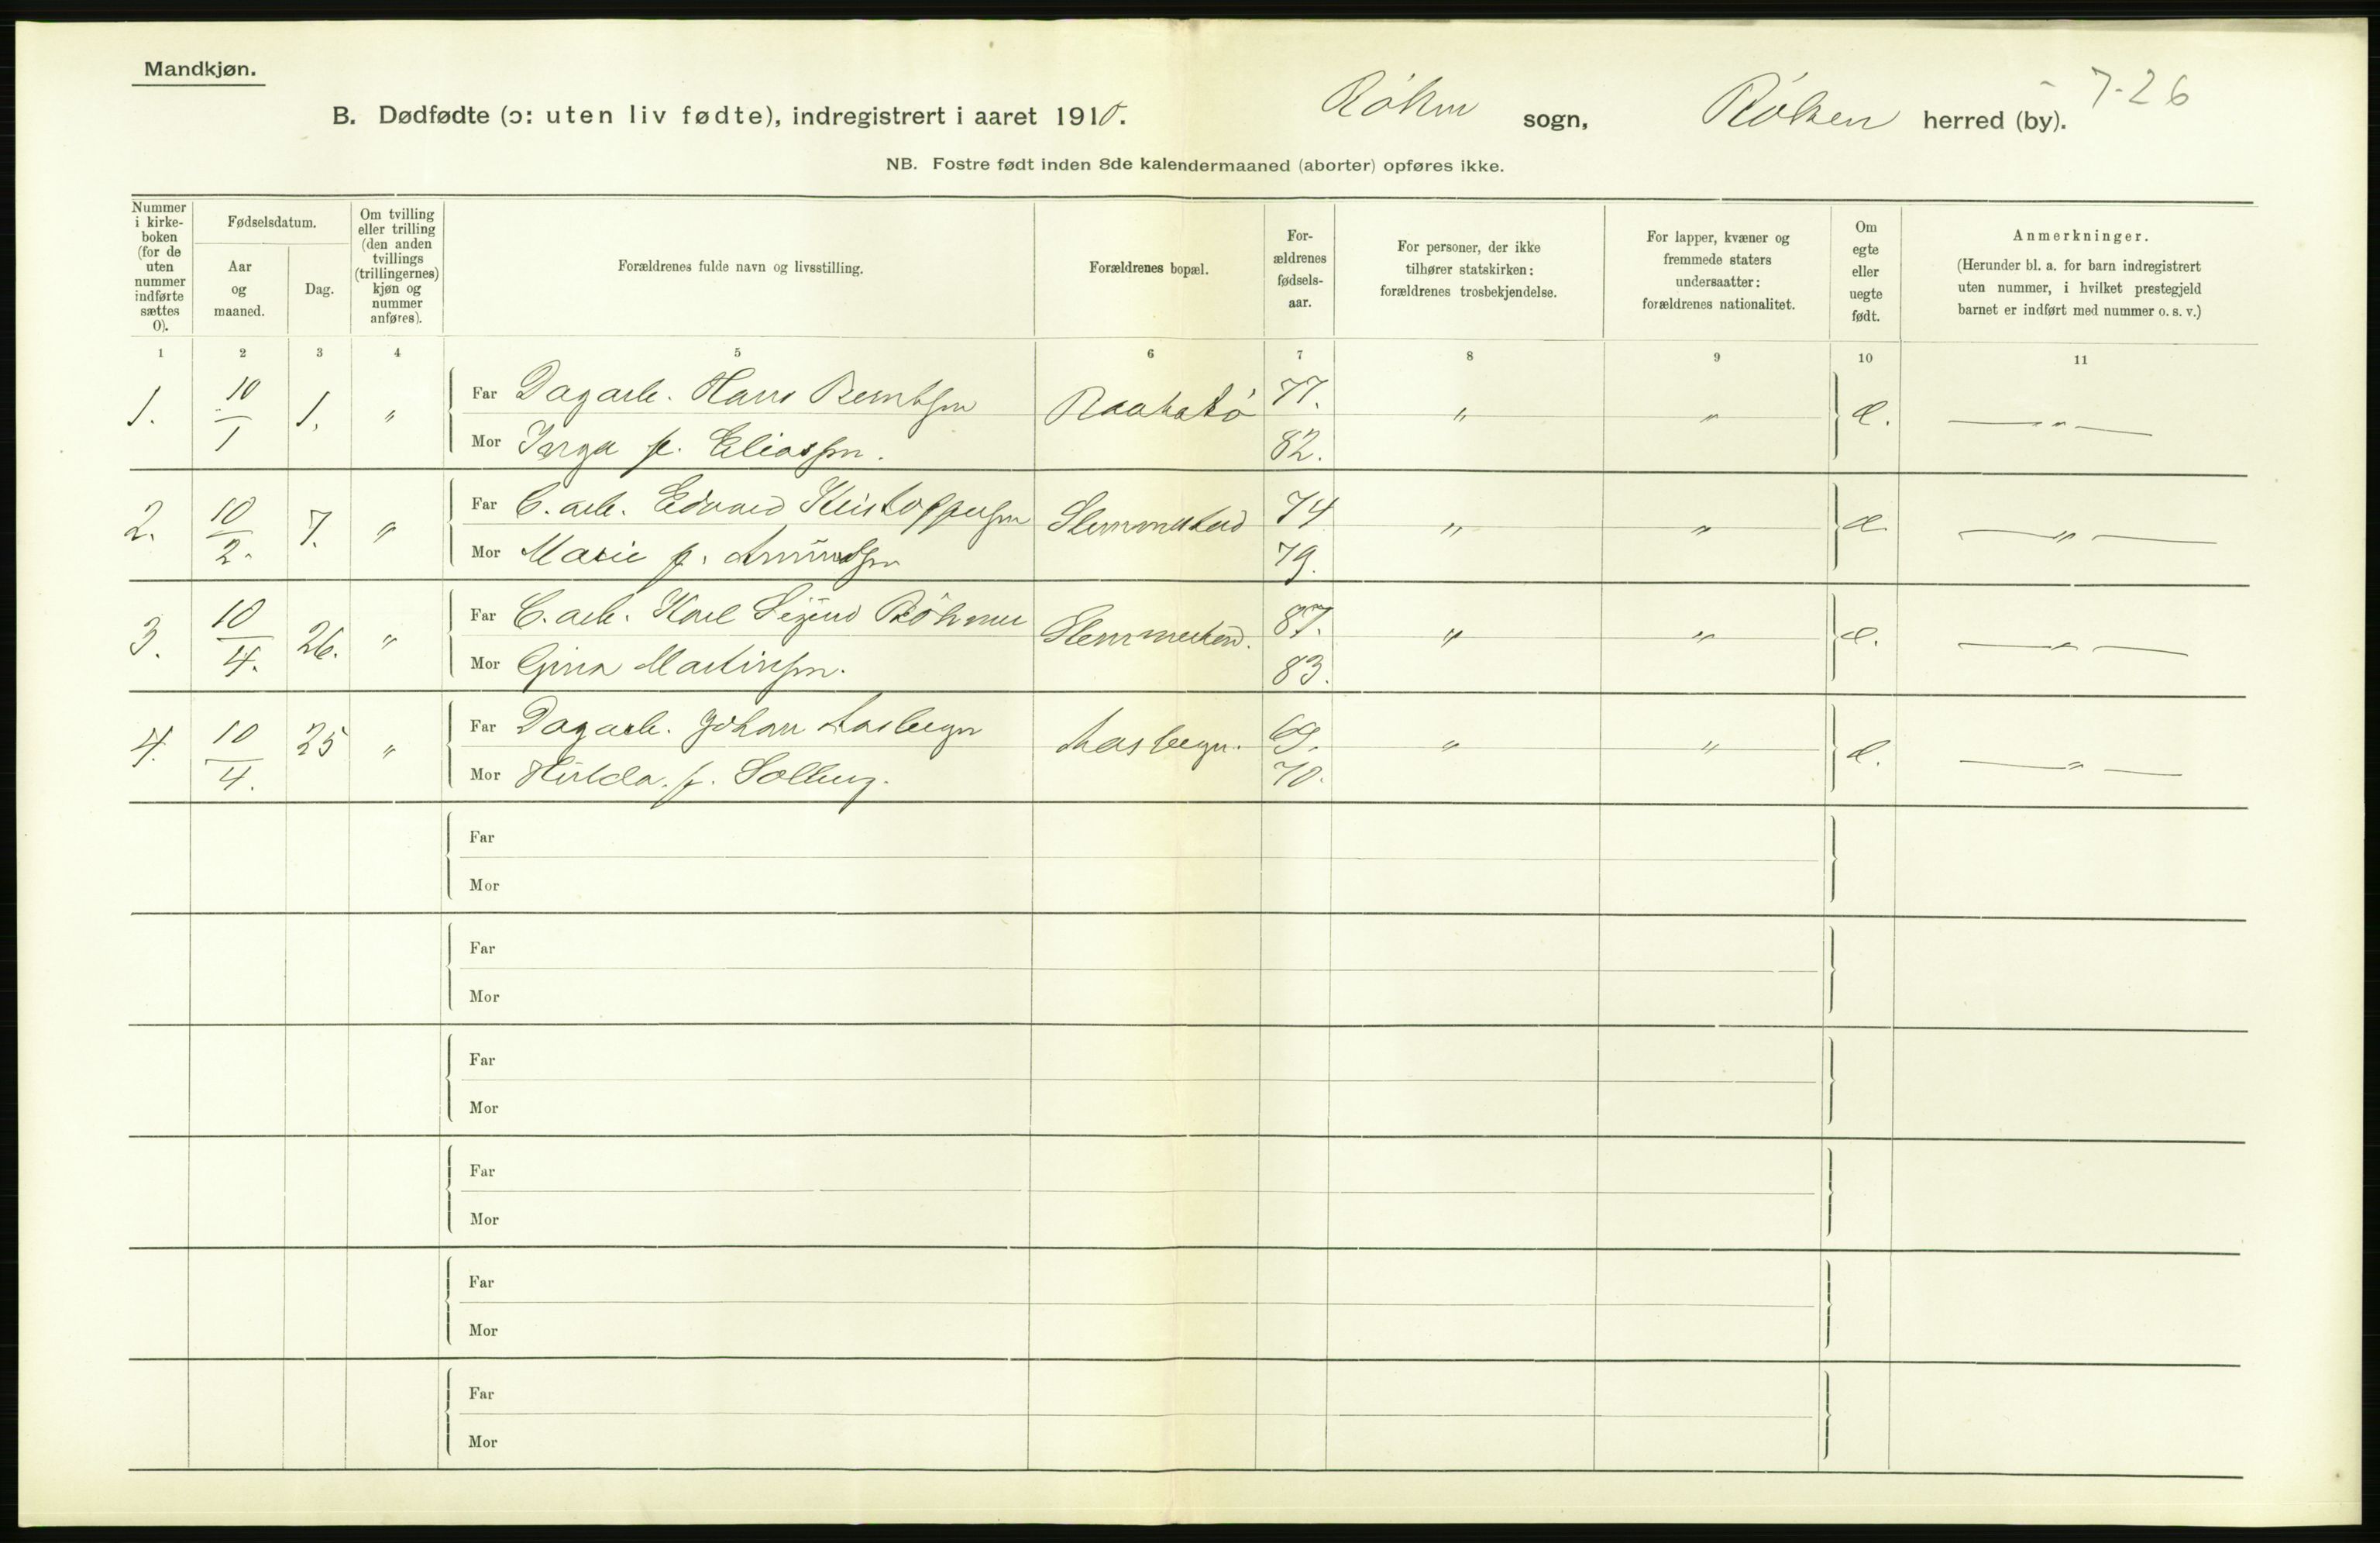 Mandkjøn.
7-26
B. Dødfødte (ɔ: uten liv fødte), indregistrert i aaret 1910. Røken sogn, Røken herred (by).
NB. Fostre født inden 8de kalendermaaned (aborter) opføres ikke.
Nummer i kirke-boken (for de uten nummer indførte sættes 0).
Fødselsdatum.
Aar og maaned.
Dag.
Om tvilling eller trilling (den anden tvillings (trillingernes) kjøn og nummer anføres).
Forældrenes fulde navn og livsstilling.
Forældrenes bopæl.
For-ældrenes fødsels-aar.
For personer, der ikke tilhører statskirken: forældrenes trosbekjendelse.
For lapper, kvæner og fremmede staters undersaatter: forældrenes nationalitet.
Om egte eller uegte født.
Anmerkninger.
(Herunder bl. a. for barn indregistrert uten nummer, i hvilket prestegjeld barnet er indført med nummer o. s. v.)
1 2 3 4 5 6 7 8 9 10 11
1. 10/1 1. " Far Dagarb. Hans Berntsen 77. " " e. — " —
Mor Inga f. Eliassen. 82.
2. 10/2. 7. " Far C. arb. Edvard Kristoffersen Slemmestad 74 " " e. — " —
Mor Marie f. Amundsen 79.
3. 10/4. 26. " Far C. arb. Karl Sigurd Slemmestad. 87. " " e. — " —
Mor Gina Martinsen. 83.
4. 10/4. 25 " Far Dagarb. Johan 69. " " e. — " —
Mor Hulda f. Solberg. 70.
Far
Mor
Far
Mor
Far
Mor
Far
Mor
Far
Mor
Far
Mor